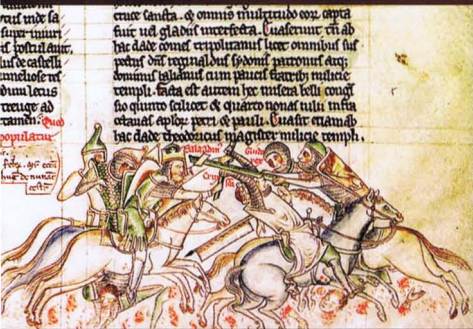 tius inde sa
super iniuri
is postulauit
dum lecus
treuge ad
tamen. Quo
populatur
cruce sancta. & omnis multitudo eoꝝ capta
fuit uel gladiis interfecta. Euaserunt tn̄ ab
hac clade comes tripolitanus licet omnibus sus
pectus dn̄s reginaldus sydonis patronus atqꝫ
dominus balianus cum paucis fratribꝫ milicie
templi. Facta est autem hec misera belli congres
sio quinto scilicet & quarto nonas iulii infra
octauas apl̄oꝝ petri & pauli. Euasit etiam ab
hac clade theodoricus magister milicie templi.
Saladin'
Guido
rex
Crux
sc̄a